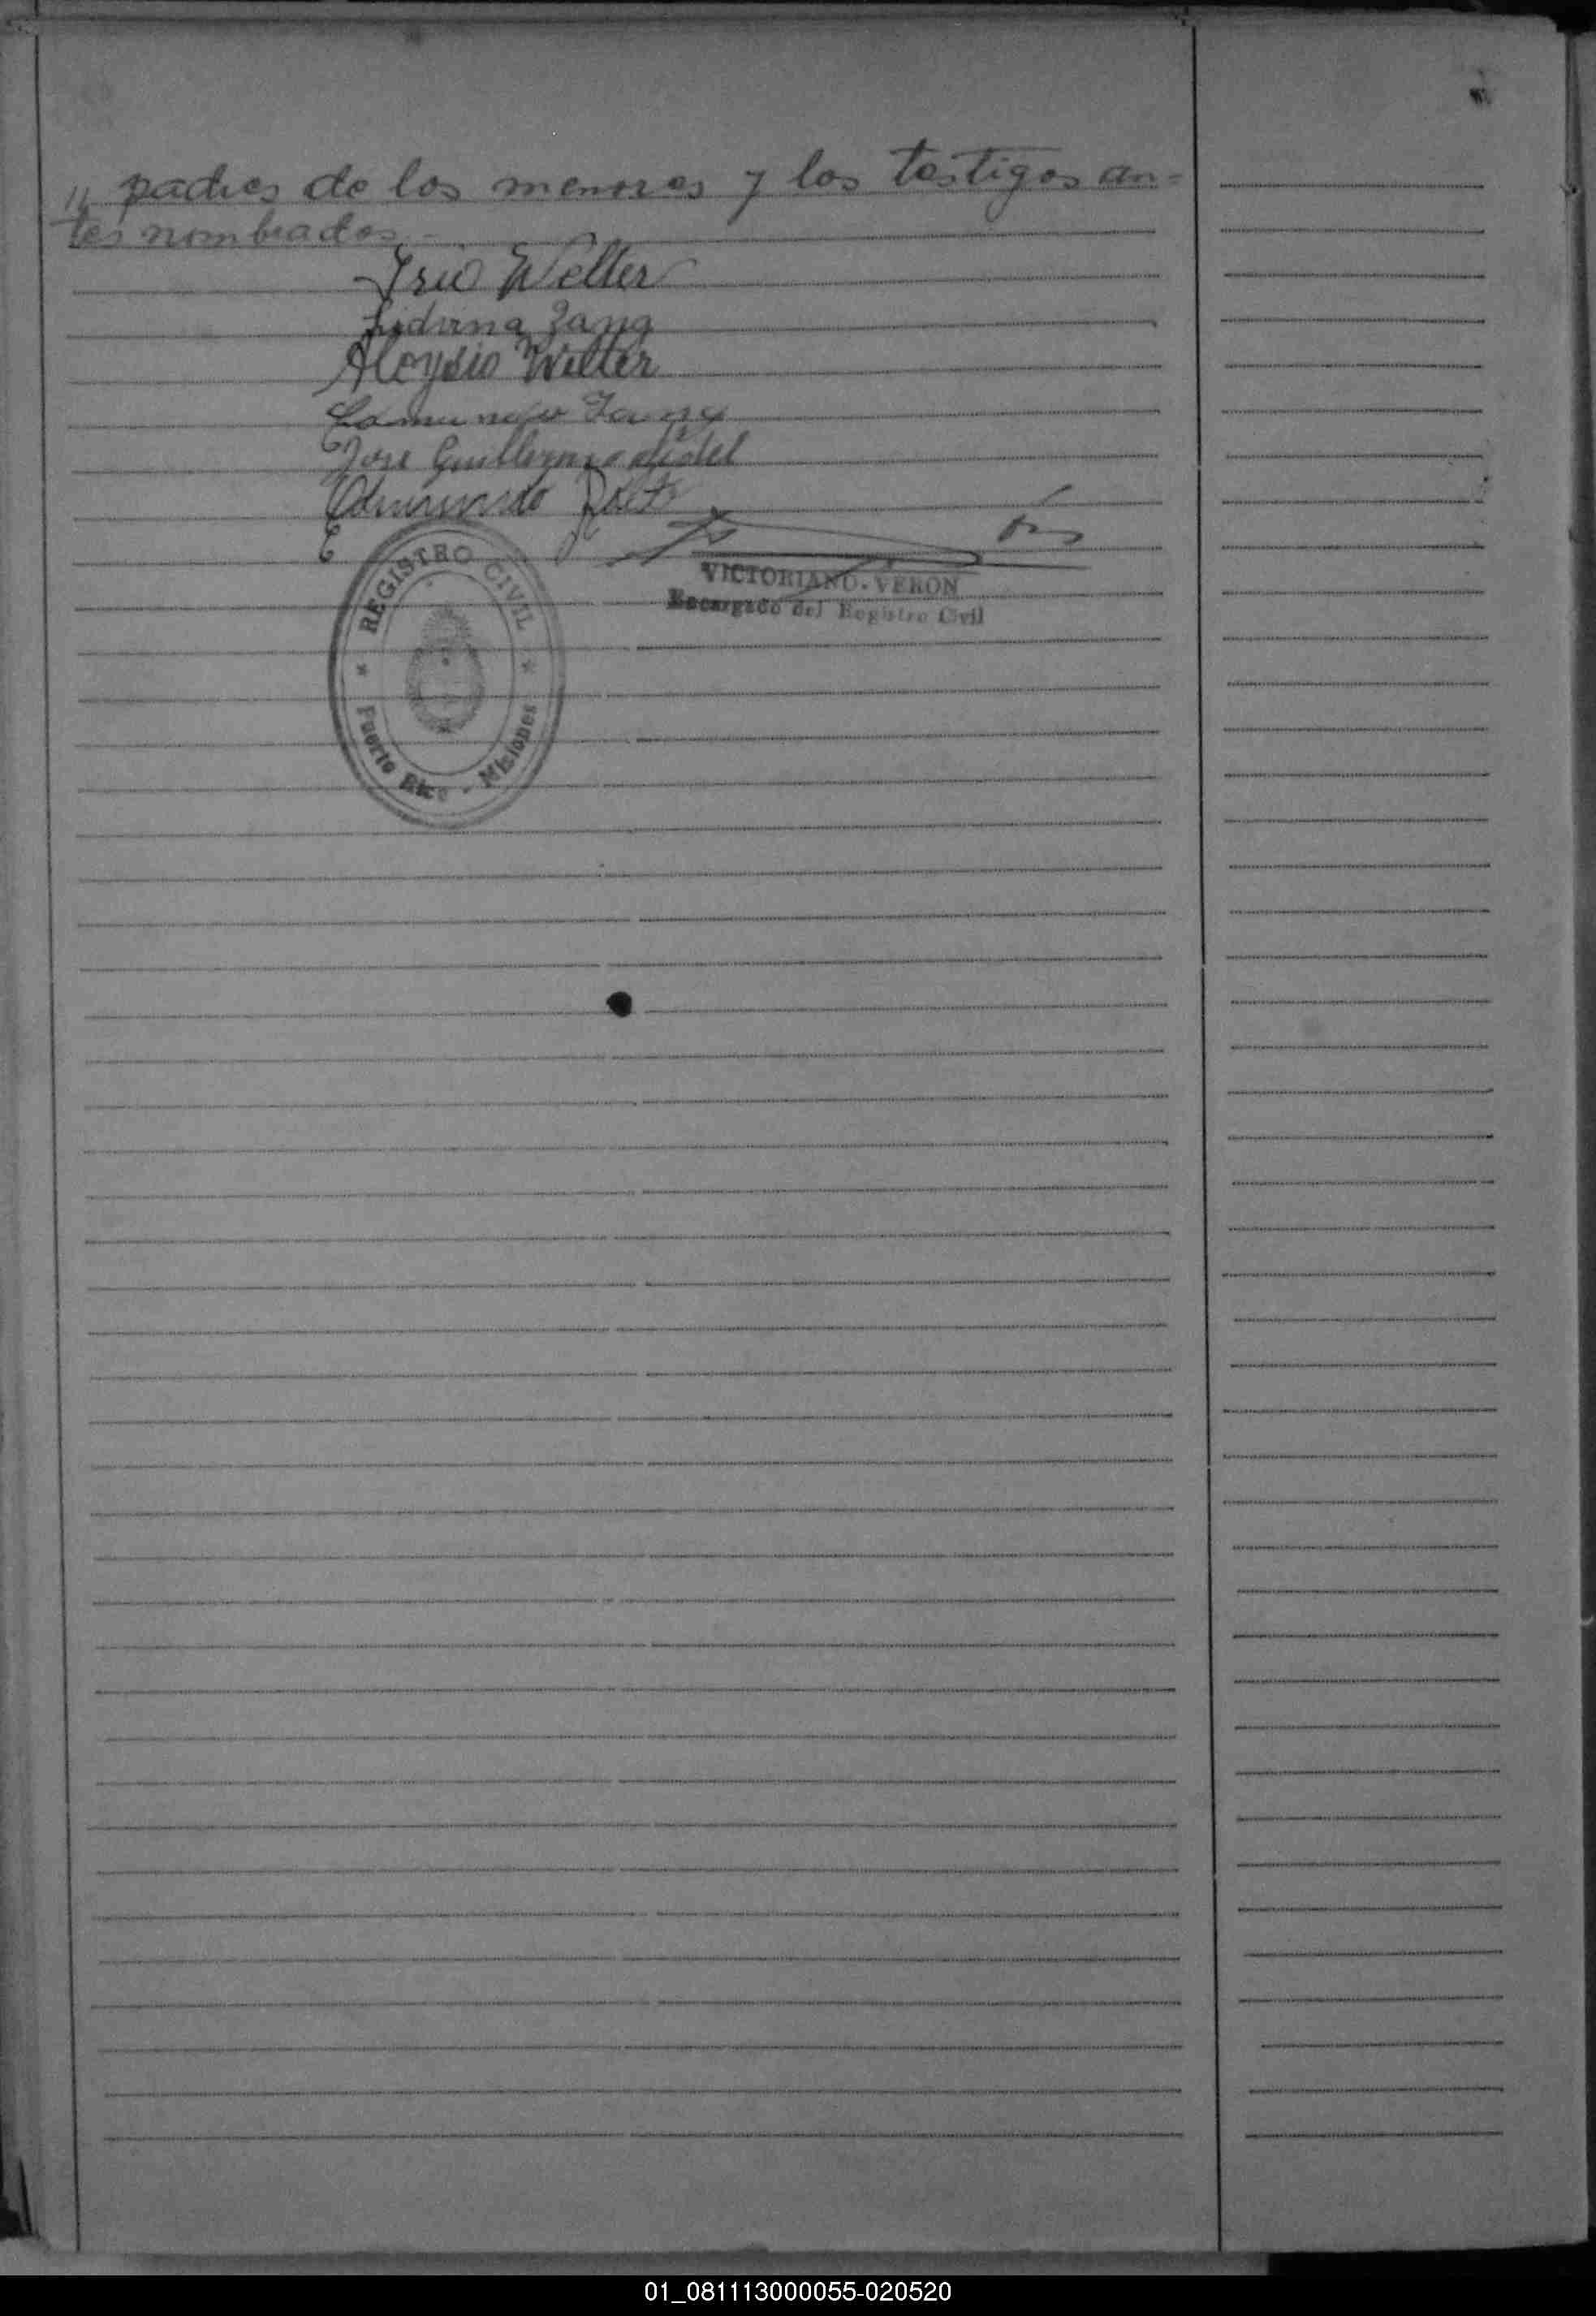 " padres de los menores y los testigos an=
tes nombrados.-
Welter
Ludvina Zang
Aloysio Welter
Zang
José Guillermo
Edmundo
VICTORIANO VERON
Encargado del Registro Civil
REGISTRO CIVIL
Puerto Rico - Misiones
01_081113000055-020520